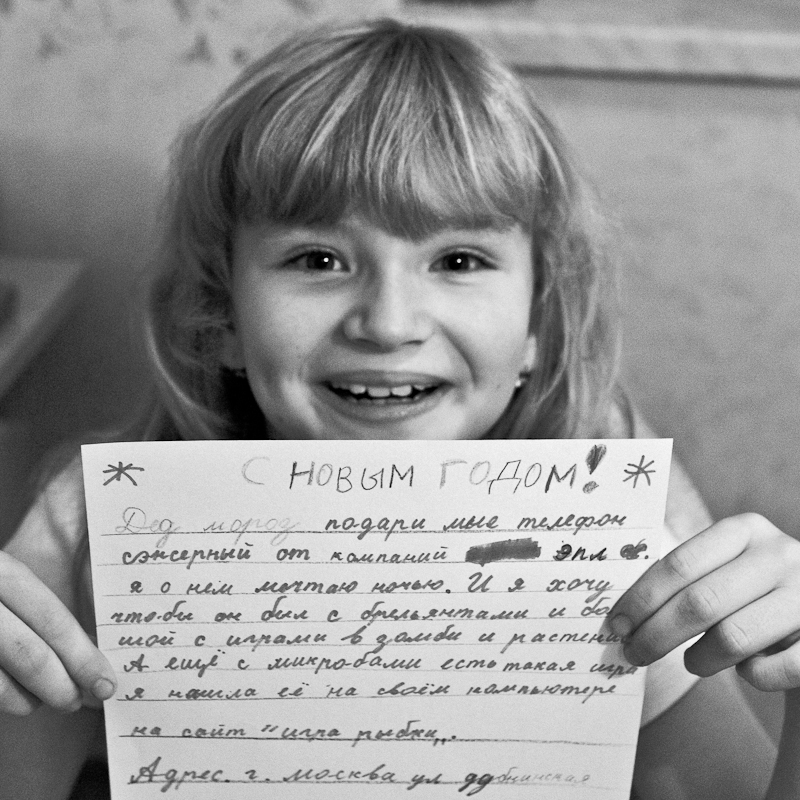 * С НОВЫМ ГОДОМ! *
Дед мороз подари мые телефон
сэнсерный от компаний эпл.
я о нём мечтаю ночью. И я хочу
что-бы он был с брельянтами и бо
шой с играми в зомби и растения
А ещё с микробами есть такая игра
я нашла её на своём компьютере
на сайт "игра рыбки„.
Адрес. г. москва ул